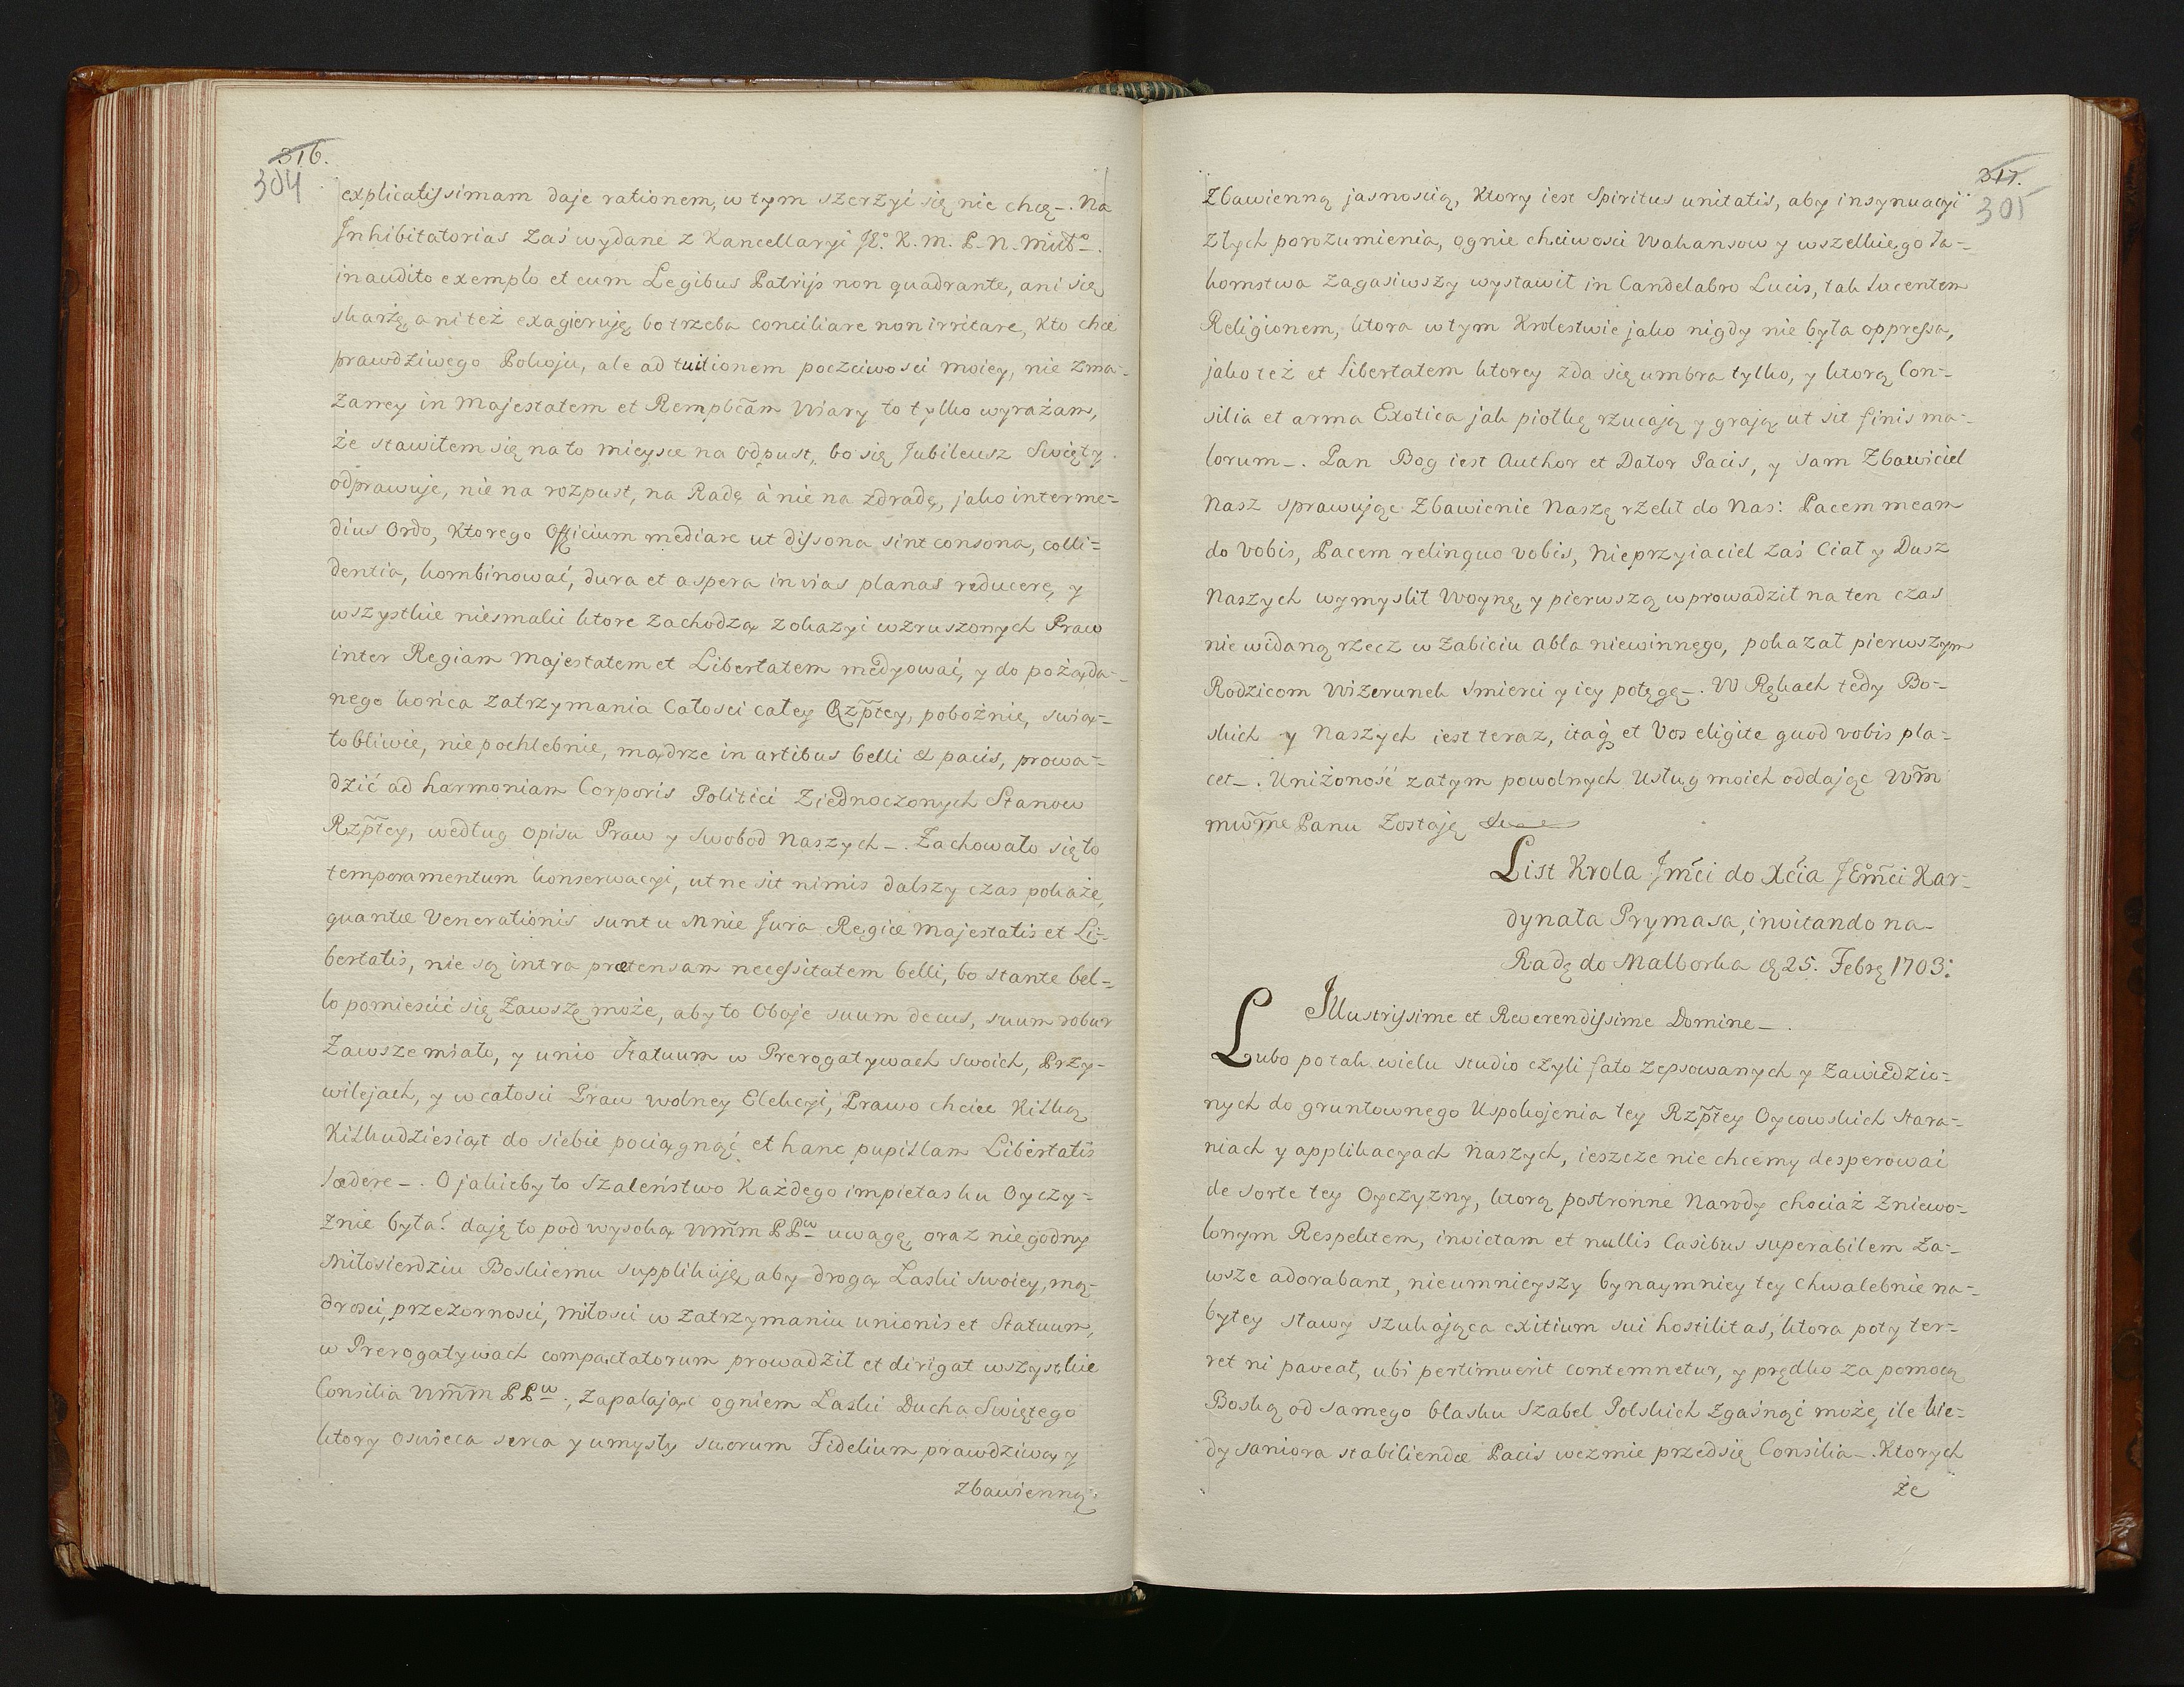 316.
304
explicatissimam daje rationem, w tym szerzyi się nie chcę_. Na
Inhibitatorias zaś wydane z Kancellaryi JE.º K. M. P. N. Miłº_.
inaudito exemplo et cum Legibus Patrijs non quadrante, ani się
skarżę, ani też exagieruję, bo trzeba conciliare non irritare, kto chce
prawdziwego Pokoju, ale ad tuitionem poczciwosci moiey, nie zma-
zaney in Majestatem et Rempbcam Wiary to tylko wyrażam,
że stawiłem się na to mieysce na odpust, bo się Jubileusz Swięty
odprawuje, nie na rozpust, na Radę à nie na zdradę, jako interme=
dius Ordo, ktorego Officium mediare ut dissona sint consona, colli=
dentia, kombinować, dura et aspera in vias planas reducere, y
wszystkie niesmaki ktore zachodzą z okazyi wzruszonych Praw
inter Regiam Majestatem et Libertatem medyować, y do pożąda-
nego końca zatrzymania Całosci całey Rzptey, pobożnie, swią=
tobliwie, nie pochlebnie, mądrze in artibus belli & pacis, prowa=
dzić ad harmoniam Corporis Politici Ziednoczonych Stanow
Rzptey, według opisu Praw y Swobod Naszych_. Zachowało się to
temperamentum konserwacyi, ut ne sit nimis dalszy czas pokaże,
quantæ Venerationis sunt u Mnie Jura Regiæ Majestatis et Li=
bertatis, nie są intra prætensam necessitatem belli, bo stante bel=
lo pomiescić się zawsze może, aby to Oboje suum decus, suum robur
zawsze miało, y unio Statuum w Prerogatywach swoich, Przy-
wilejach, y w całosci Praw wolney Elekcyi, Prawo chciec Kilką
Kilkudziesiąt do siebie pociągnąć et hanc pupillam Libertatis
lædere_. O jakieby to szaleństwo każdego impietas ku Oyczy=
znie była! daję to pod wysoką Wmm PPw uwagę, oraz niegodny
Miłosierdziu Boskiemu supplikuję, aby drogą Łaski swoiey, mą-
drosci, przezornosci, miłosci w zatrzymaniu unionis et Statuum,
w Prerogatywach compactatorum prowadził et dirigat wszystkie
Consilia Wmm PPw., zapalając ogniem Łaski Ducha Swiętego
ktory oswieca serca y umysły suorum Fidelium prawdziwą y
zbawienną
317.
305
zbawienną jasnoscią, ktory iest Spiritus unitatis, aby insynuacyi
złych porozumienia, ognie chciwosci Wakansow y wszelkiego ła-
komstwa zagasiwszy wystawił in Candelabro Lucis, tak lucentem
Religionem, ktora w tym Krolestwie jako nigdy nie była oppressa,
jako też et Libertatem ktorey zda się umbra tylko, y ktorą Con=
silia et arma Exotica jak piołkę rzucają y grają ut sit finis ma-
lorum_. Pan Bog iest Author et Dator Pacis, y sam Zbawiciel
Nasz sprawując Zbawienie Naszę rzekł do Nas: Pacem meam
do vobis, Pacem relinquo vobis, Nieprzyiaciel zaś Ciał y Dusz
Naszych wymyslił Woynę, y pierwszą wprowadził na ten czas
nie widaną rzecz w zabiciu Abla niewinnego, pokazał pierwszym
Rodzicom Wizerunek Smierci y iey potęgę_. W Rękach tedy Bo-
skich y Naszych iest teraz, itaq et Vos eligite quod vobis pla-
cet_. Uniżoność zatym powolnych Usług moich oddając Wm
mwme Panu zostaję
List Krola Jmci do Xcia JEºmci Kar-
dynała Prymasa, invitando na
Radę do Malborka 25. Febr 1703.
Illustrissime et Reverendissime Domine_.
Lubo po tak wielu studio czyli fato zepsowanych y zawiedzio-
nych do gruntownego Uspokojenia tey Rzptey Oycowskich stara=
niach y applikacyach Naszych, ieszcze nie chcemy desperować
de sorte tey Oyczyzny, ktorą postronne Narody chociaż zniewo-
lonym Respektem, invictam et nullis Casibus superabilem za-
wsze adorabant, nie umnieyszy bynaymniey tey chwalebnie na-
bytey sławy szukająca exitium sui hostilitas, ktora poty ter-
ret ni paveat, ubi pertimuerit contemnetur, y prędko za pomocą
Boską od samego blasku szabel Polskich zgasnąć może, ile kie-
dy saniora stabiliendæ Pacis wezmie przedsię Consilia_. Ktorych
że